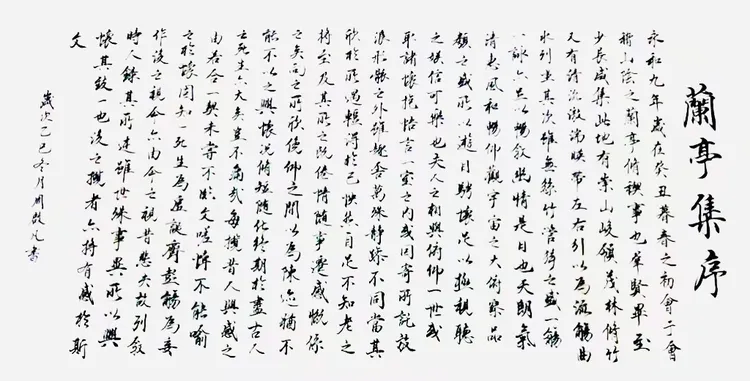 蘭亭集序
永和九年歲在癸丑暮春之初會于會
稽山陰之蘭亭脩禊事也羣賢畢至
少長咸集此地有崇山峻領茂林脩竹
又有清流激湍暎帶左右引以為流觴曲
水列坐其次雖無絲竹管弦之盛一觴
一詠亦足以暢敘幽情是日也天朗氣
清惠風和暢仰觀宇宙之大俯察品
類之盛所以遊目騁懷足以極視聽
之娛信可樂也夫人之相與俯仰一世或
取諸懷抱悟言一室之內或因寄所託放
浪形骸之外雖趣舍萬殊靜躁不同當其
欣於所遇暫得於己怏然自足不知老之
將至及其所之既倦情隨事遷感慨係
之矣向之所欣俛仰之間以為陳迹猶不
能不以之興懷況脩短隨化終期於盡古人
云死生亦大矣豈不痛哉每攬昔人興感之
由若合一契未嘗不臨文嗟悼不能喻
之於懷固知一死生為虛誕齊彭殤為妄
作後之視今亦由今之視昔悲夫故列敘
時人錄其所述雖世殊事異所以興
懷其致一也後之攬者亦將有感於斯
文
歲次乙巳冬月周啟凡書